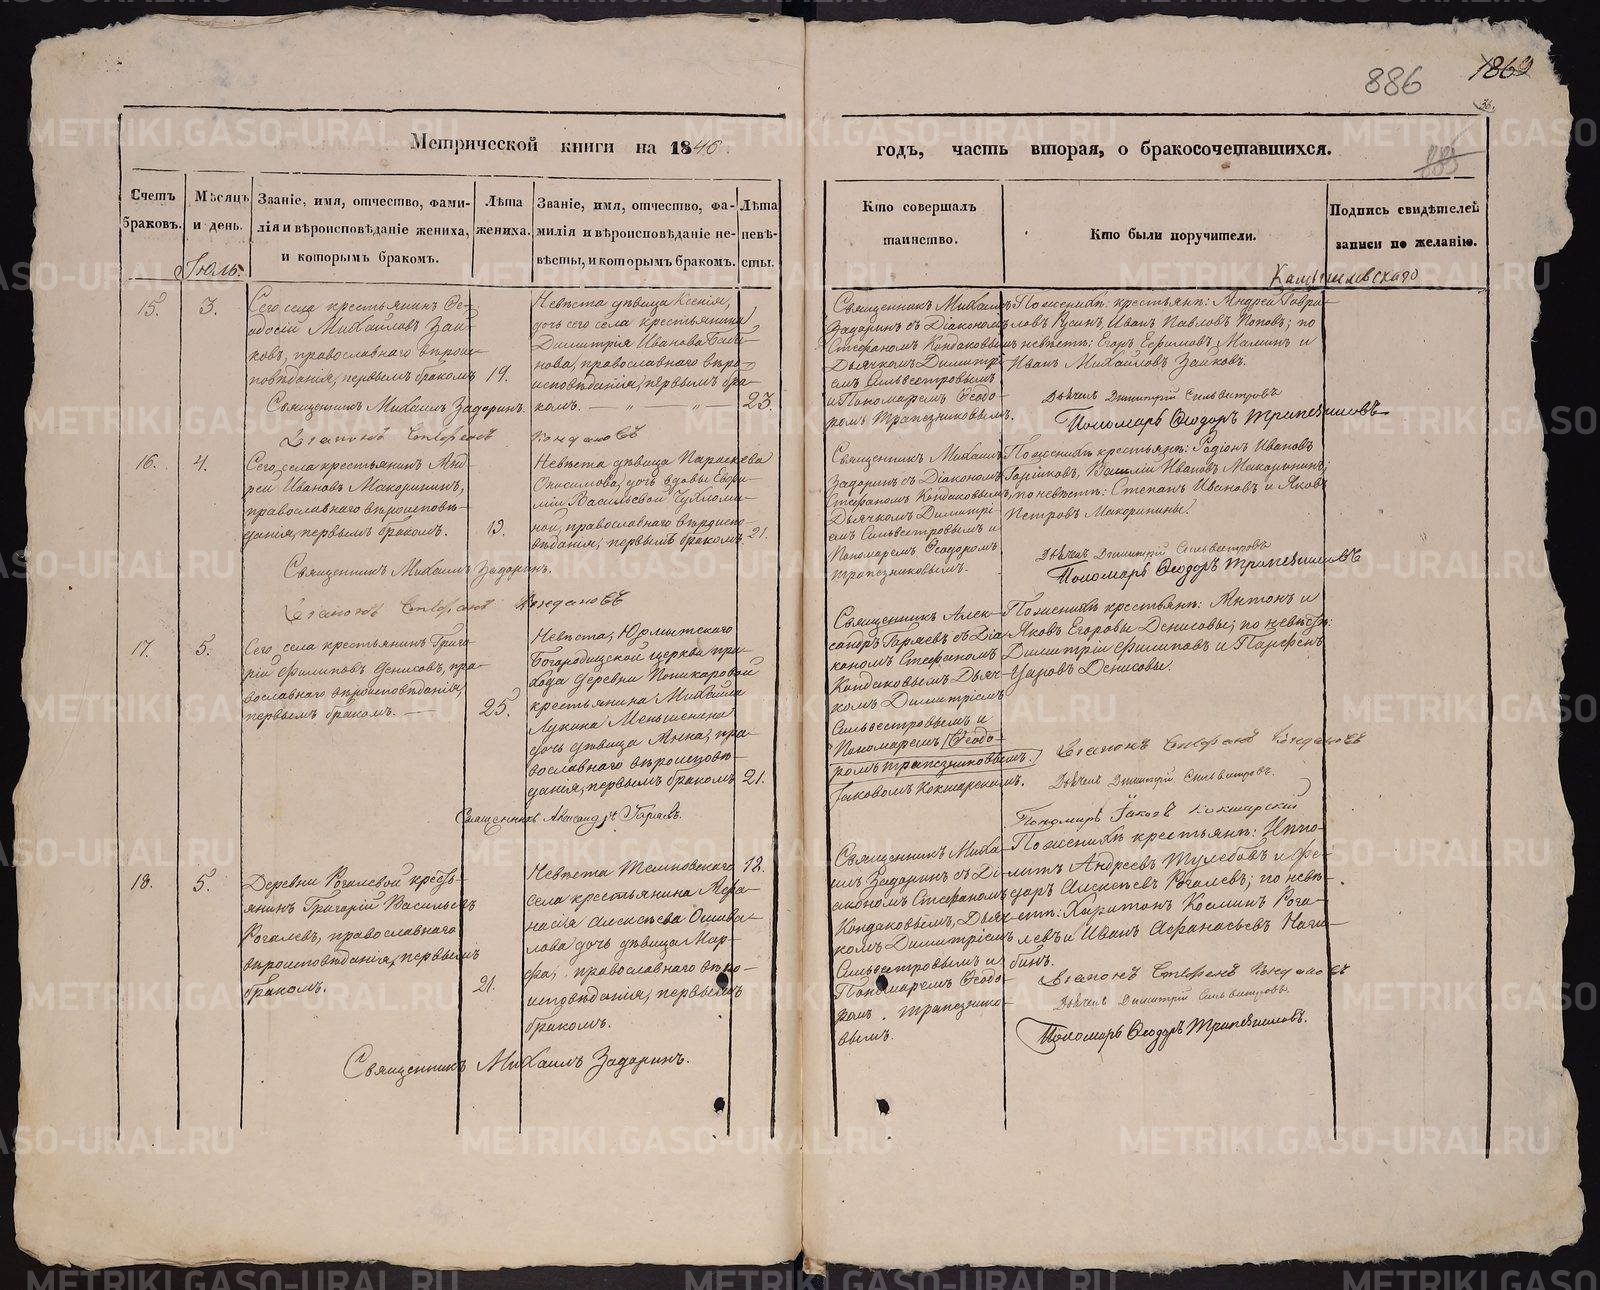 886
1869
36.
885
Метрической книги на 1846
годъ, часть вторая, о бракосочетавшихся.
Счетъ браковъ.
Мѣсяцъ и день.
Званіе, имя, отчество, фами-
лія и вѣроисповѣданіе жениха,
и которымъ бракомъ.
Лѣта
жениха.
Званіе, имя, отчество, фа-
милія и вѣроисповѣданіе не-
вѣсты, и которымъ бракомъ.
Лѣта
невѣ-
сты.
Кто совершалъ
таинство.
Кто были поручители.
Подпись свидѣтелей
записи по желанію.
Іюль.
15.
3.
Сего села крестьянинъ Ѳе-
досій Михайловъ Зай-
ковъ, православнаго вѣрои-
повѣданія, первымъ бракомъ
19.
Невѣста дѣвица Ксенія,
дочь сего села крестьянина
Димитрія Иванова
нова, православнаго вѣро-
исповѣданія, первымъ бра-
комъ.
23.
Священникъ Михаилъ
Задоринъ съ Діакономъ
Стефаномъ Кондаковымъ
Дьячкомъ Димитрі-
емъ Сильвестровымъ
и Пономаремъ Ѳеодо-
ромъ Трапезниковымъ.
По женихѣ: крестьяне: Андрей Гаври-
ловъ Русинъ, Иванъ Павловъ Поповъ; по
невѣстѣ: Егоръ Ефимовъ Маминъ и
Иванъ Михайловъ Зайковъ.
Дьячекъ Димитрій Сильвестровъ
Пономарь Ѳеодоръ Трапезниковъ
Священникъ Михаилъ Задоринъ.
Діаконъ Стефанъ Кондаковъ
16.
4.
Сего села крестьянинъ Анд-
рей Ивановъ Макоринъ,
православнаго вѣроисповѣ-
данія, первымъ бракомъ.
Невѣста дѣвица Параскева
Онисимова, дочь вдовы Евфи-
міи Васильевой Чухломи-
ной, православнаго вѣроиспо-
вѣданія, первымъ бракомъ.
21.
Священникъ Михаилъ
Задоринъ съ Діакономъ
Стефаномъ Кондаковымъ,
Дьячкомъ Димитрі-
емъ Сильвестровымъ и
Пономаремъ Ѳеодоромъ
Трапезниковымъ.
По женихѣ крестьяне: Родіонъ Ивановъ
Василій Ивановъ
по невѣстѣ: Степанъ Ивановъ и Яковъ
Петровъ Макорины.
Дьячекъ Димитрій Сильвестровъ
Пономарь Ѳеодоръ Трапезниковъ
Священникъ Михаилъ Задоринъ.
Діаконъ Стефанъ Кондаковъ
17.
5.
Сего села крестьянинъ Григо-
рій Филиповъ Денисовъ, пра-
вославнаго вѣроисповѣданія,
первымъ бракомъ.
25.
Невѣста, Юрмытскаго
Богородицской церкви при-
хода деревни
крестьянина Михаила
Лукина Меньшенина
дочь дѣвица Анна, пра-
вославнаго вѣроисповѣ-
данія, первымъ бракомъ
21.
Священникъ Алек-
сандръ Гаряевъ съ Діа-
кономъ Стефаномъ
Кондаковымъ Дьяч-
комъ Димитріемъ
Сильвестровымъ и
Пономаремъ Ѳеодо-
ромъ Трапезниковымъ.
Іаковомъ Кокшарскимъ.
По женихѣ крестьяне: Антонъ и
Яковъ Егоровы Денисовы; по невѣстѣ:
Димитрій Филиповъ и Парфенъ
Уаровъ Денисовы.
Діаконъ Стефанъ Кондаковъ
Дьячекъ Димитрій Сильвестровъ.
Пономарь Іаковъ Кокшарскій
Священникъ Александръ Гаряевъ.
18.
5.
Деревни Рогалевой кресть-
янинъ Григорій Васильевъ
Рогалевъ, православнаго
вѣроисповѣданія, первымъ
бракомъ.
21.
Невѣста Темновскаго
села крестьянина Афа-
насія Алексѣева Ошива-
лова дочь дѣвица Мар-
фа, православнаго вѣро-
исповѣданія, первымъ
бракомъ.
18.
Священникъ Миха-
илъ Задоринъ съ Ді-
акономъ Стефаномъ
Кондаковымъ, Дьяч-
комъ Димитріемъ
Сильвестровымъ и
Пономаремъ Ѳеодо-
ромъ Трапезнико-
вымъ.
По женихѣ крестьяне: Иппо-
литъ Андреевъ Тулебовъ и Фе-
доръ Алексѣевъ Рогалевъ; по невѣ-
стѣ: Харитонъ Козминъ Рога-
левъ и Иванъ Афанасьевъ Наги-
бинъ.
Діаконъ Стефанъ Кондаковъ
Дьячекъ Димитрій Сильвестровъ.
Пономарь Ѳеодоръ Трапезниковъ.
Священникъ Михаилъ Задоринъ.
METRIKI.GASO-URAL.RU